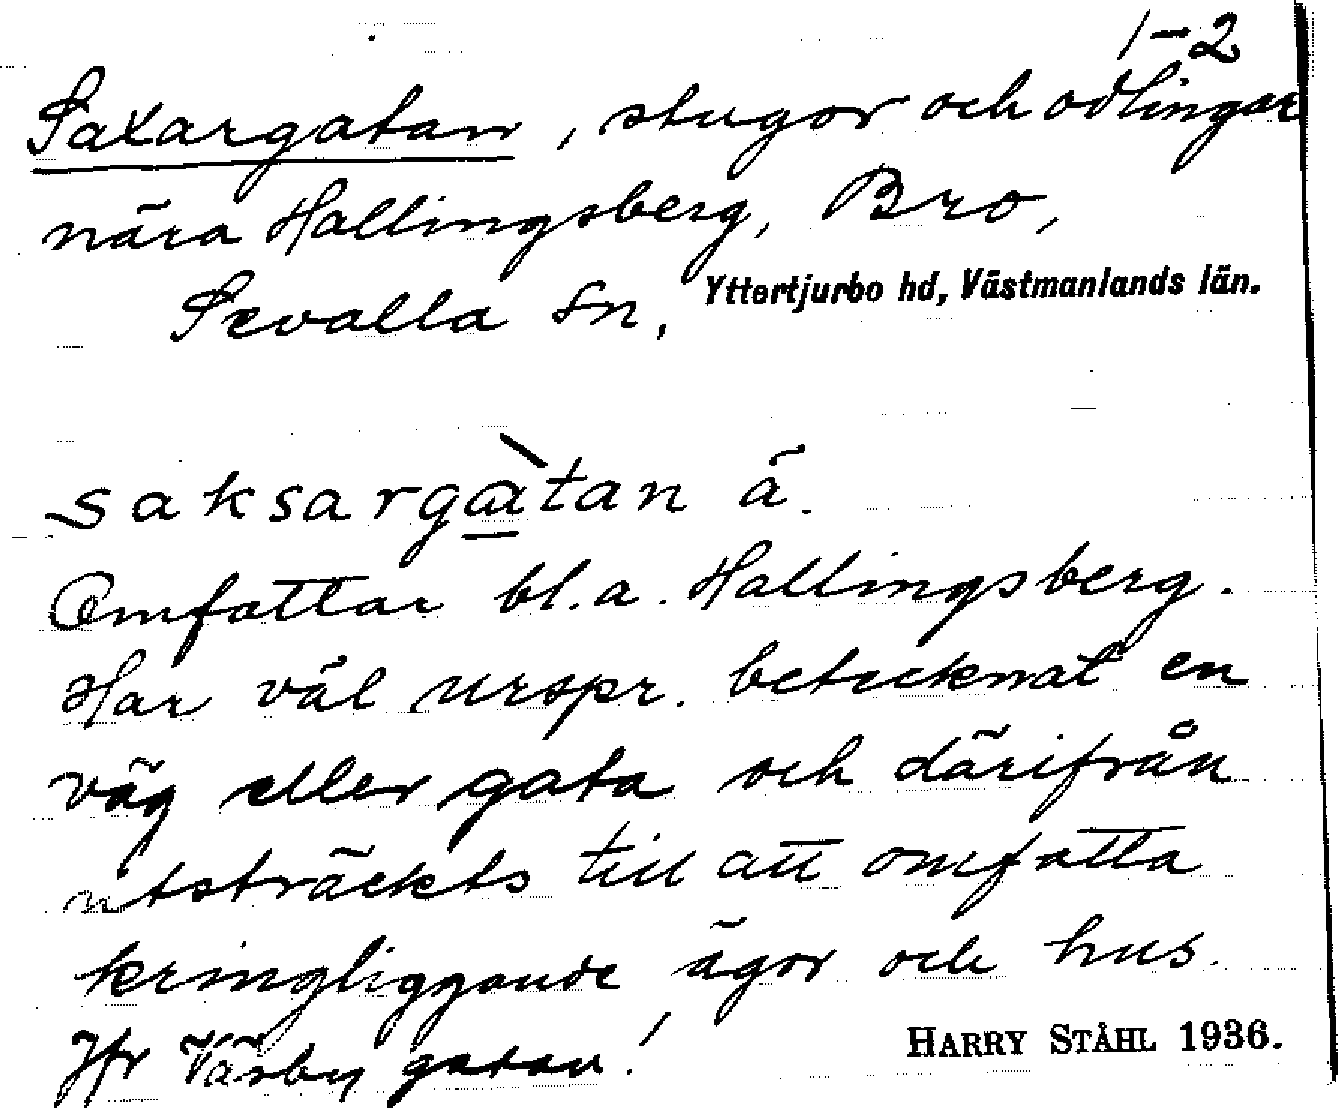 1-2
Saxargatan, stugor och odlingar
nära Hallingsberg, Bro,
Sevalla Sn, Yttertjurbo hd, Västmanlands län.
saksargàtan ä.
Omfattar bl.a. Hallingsberg.
Har väl urspr. betecknat en
väg eller gata och därifrån
utsträckts till att omfatta
kringliggande ägor och hus.
Jfr Väsby gatan!
HARRY STÅHL 1936.